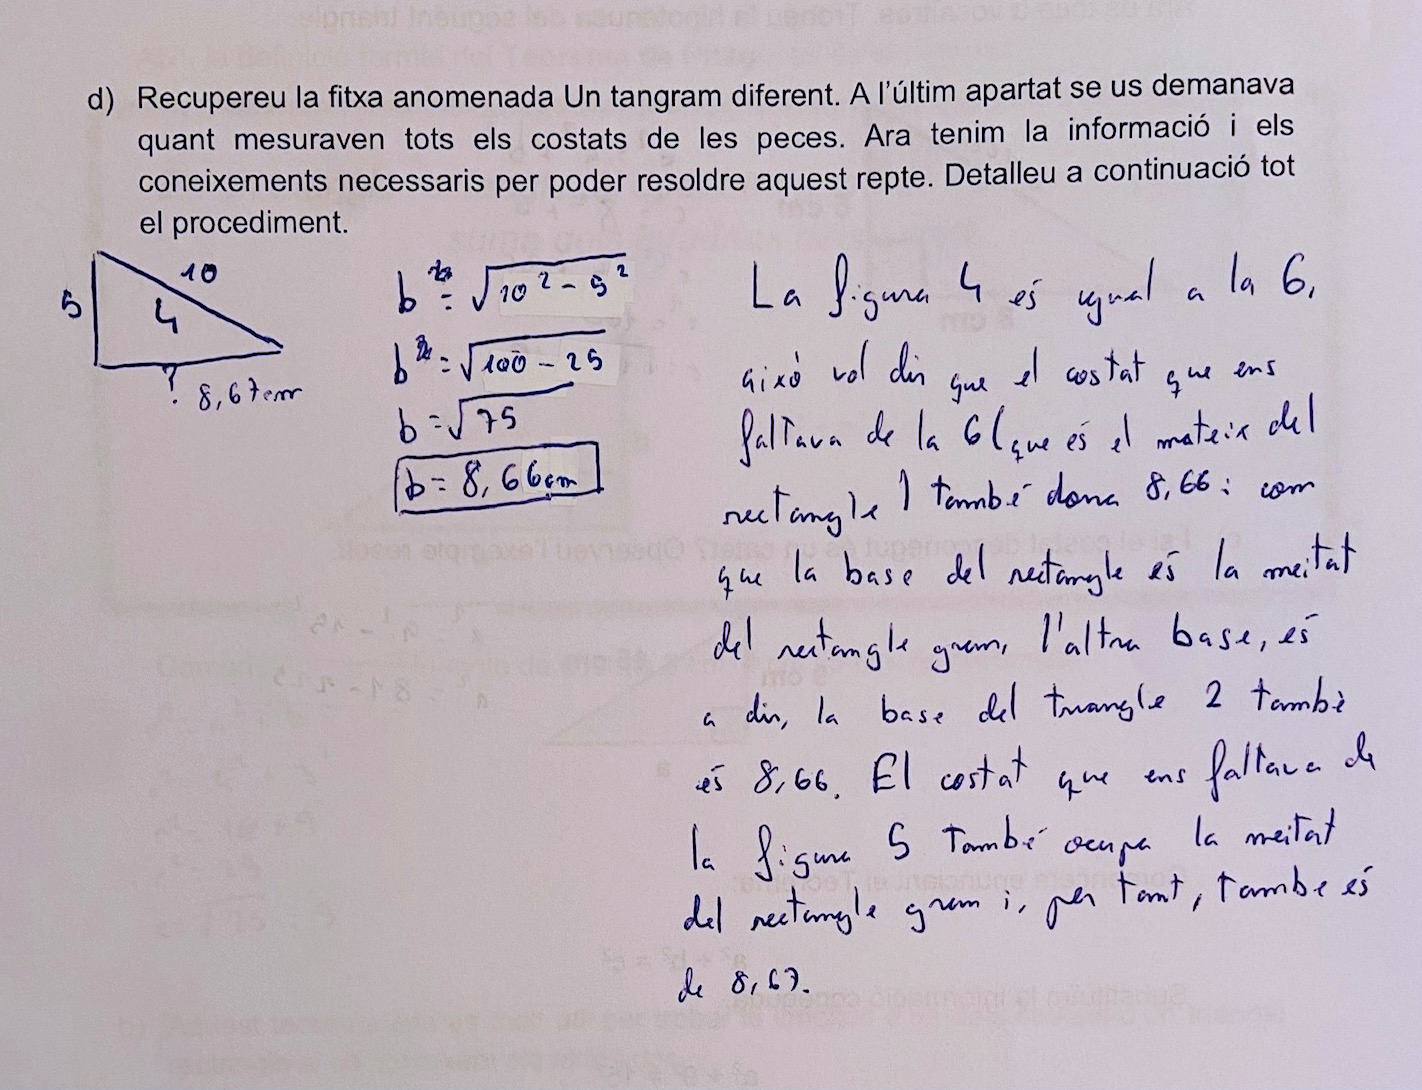 d) Recupereu la fitxa anomenada Un tangram diferent. A l'últim apartat se us demanava
quant mesuraven tots els costats de les peces. Ara tenim la informació i els
coneixements necessaris per poder resoldre aquest repte. Detalleu a continuació tot
el procediment.
5
10
4
?
8,67cm
b = √10² - 5²
b = √100 - 25
b = √75
b = 8,66cm
La figura 4 és igual a la 6,
això vol dir que el costat que ens
faltava de la 6 (que és el mateix del
rectangle) també dona 8,66 i com
que la base del rectangle és la meitat
del rectangle gram, l'altra base, és
a dir, la base del triangle 2 també
és 8,66. El costat que ens faltava de
la figura 5 també ocupa la meitat
del rectangle gram i, per tant, tambe és
de 8,67.